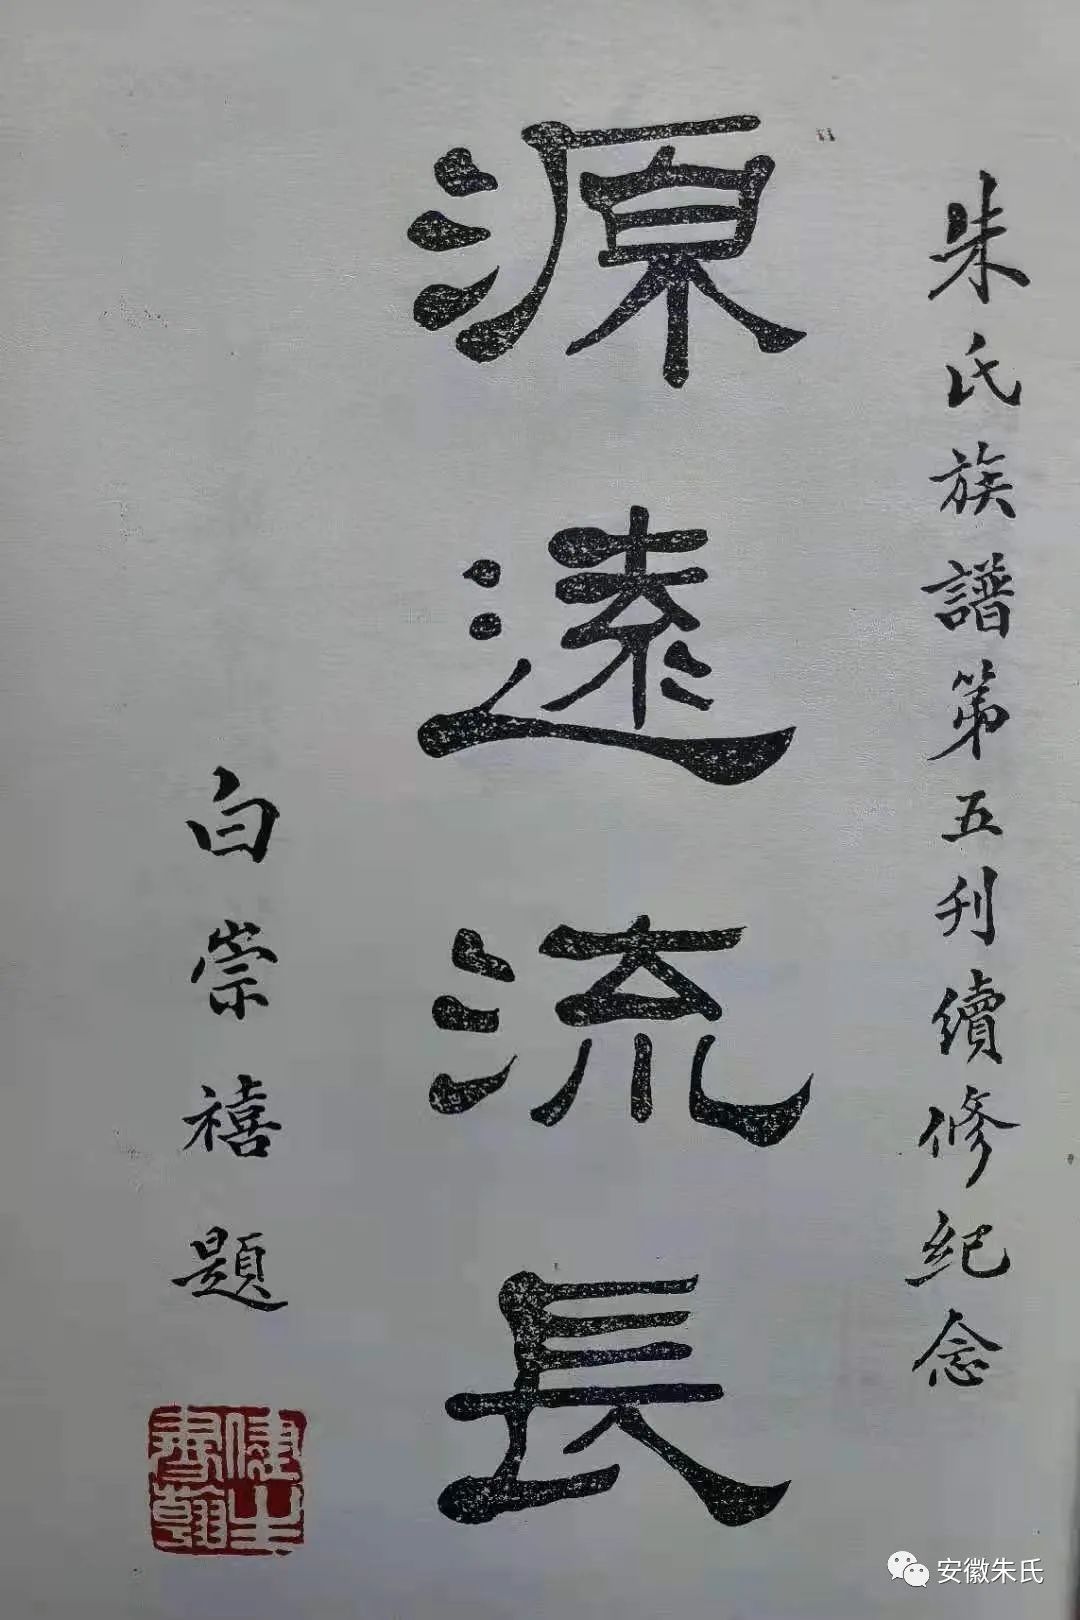 朱氏族譜第五刋續修紀念
源遠流長
白崇禧題
健生書翰
安徽朱氏